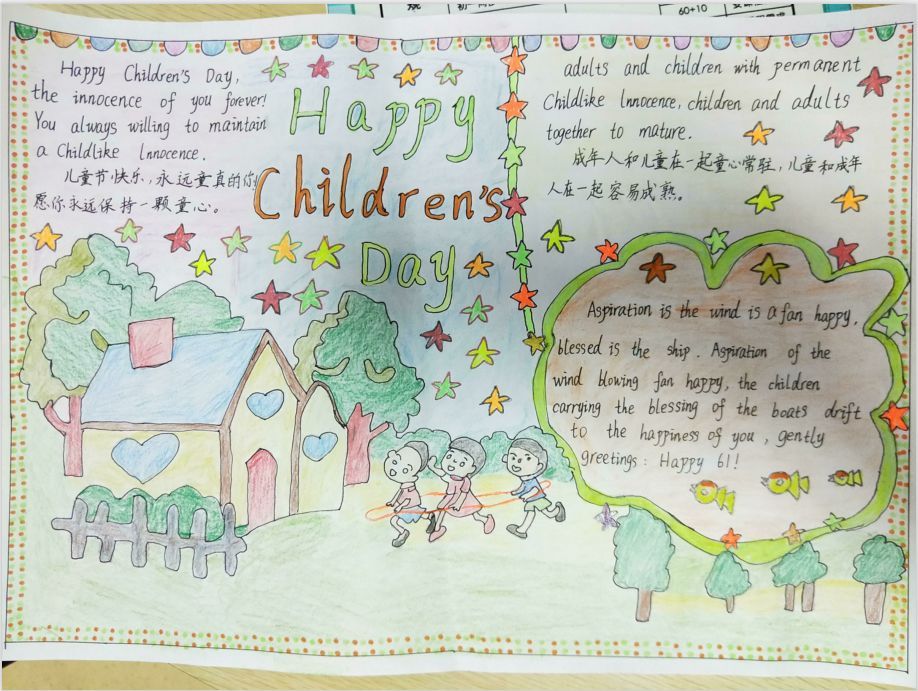 烧
60+10
Happy Children's Day,
the innocence of you forever!
You always willing to maintain
a Childlike lnnocence.
儿童节快乐,永远童真的你!
愿你永远保持一颗童心。
Happy
Children's
Day
adults and children with permanent
Childlike lnnocence, children and adults
together to mature.
成年人和儿童在一起童心常驻,儿童和成年
人在一起容易成熟。
Aspiration is the wind is a fan happy,
blessed is the ship. Aspiration of the
wind blowing fan happy, the children
carrying the blessing of the boats drift
to the happiness of you, gently
greetings: Happy 61!